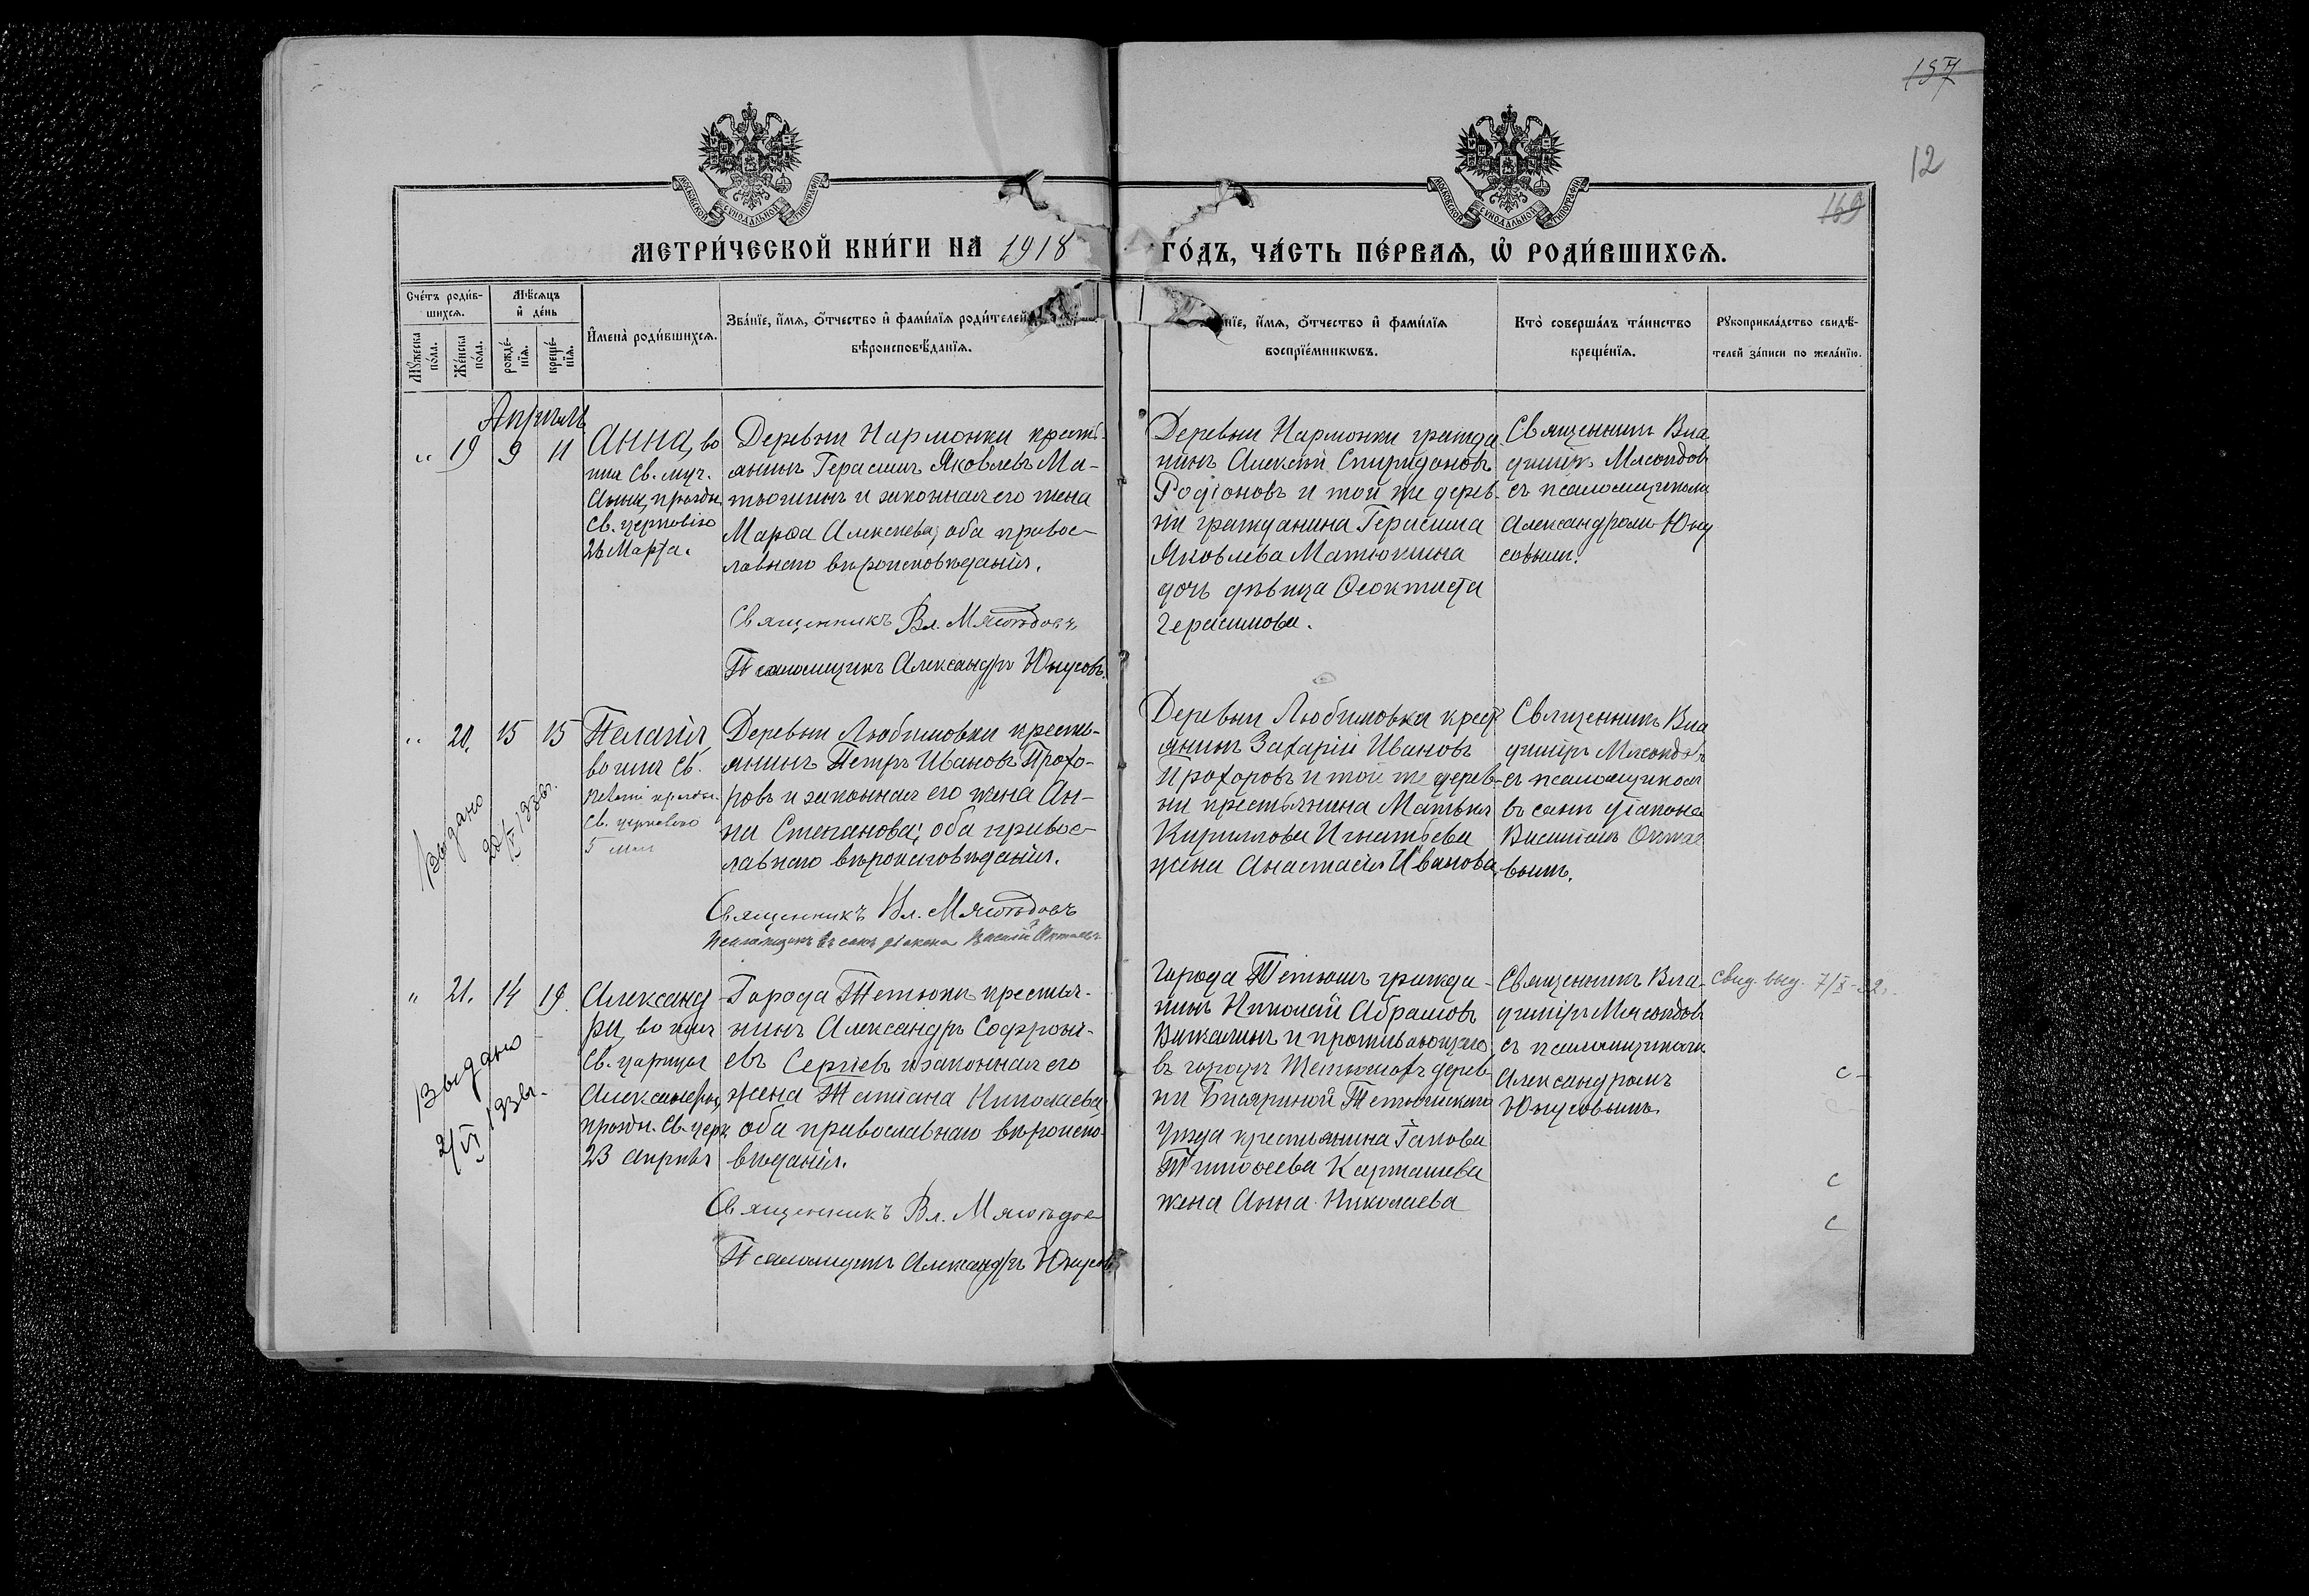 157
12
169
МОСКОВСКОЙ СѴНОДАЛЬНОЙ ТИПОГРАФІИ
МОСКОВСКОЙ СѴНОДАЛЬНОЙ ТИПОГРАФІИ
МЕТРИ́ЧЕСКОЙ КНИ́ГИ НА 1918 ГО́ДЪ, ЧА́СТЬ ПЕ́РВАѦ, Ѡ҆ РОДИ́ВШИХСѦ.
Сче́тъ роди́в-
шихсѧ.
Мꙋ́жеска по́ла.
Же́нска по́ла.
Мѣ́сѧцъ
и҆ де́нь
рожде́-
нїѧ.
креще́-
нїѧ.
И҆мена̀ роди́вшихсѧ.
Зва́нїе, и҆́мѧ, ѻ҆́тчество и҆ фами́лїѧ роди́телей
вѣроисповѣ́данїѧ.
нїе, и҆́мѧ, ѻ҆́тчество и҆ фами́лїѧ
воспрїе́мникѡвъ.
Кто̀ соверша́лъ та́инство
креще́нїѧ.
Рꙋкоприкла́дство свидѣ́-
телей за́писи по жела́нїю.
Апрѣль
" 19 9 11
Анна, во
имя Св. муч.
Анны, праздн.
Св. церковію
26 Марта.
Деревни Нармонки кресть-
янинъ Герасимъ Яковлевъ Ма-
тюшинъ и законная его жена
Марѳа Алексѣева; оба правос-
лавнаго вѣроисповѣданія.
Священникъ Вл. Мясоѣдовъ
Псаломщикъ Александръ Юнусовъ.
Деревни Нармонки гражда
нинъ Алексѣй Спиридоновъ
Родіоновъ и той же дерев-
ни гражданина Герасима
Яковлева Матюшина
дочь дѣвица Ѳеоктиста
Герасимова.
Священникъ Вла
диміръ Мясоѣдовъ
съ псаломщикомъ
Александромъ Юну
совымъ.
" 20. 15 15
Выдано
Пелагія,
во имя Св.
праздн.
Св. церковію
5 мая
Деревни Любимовки кресть-
янинъ Петръ Ивановъ Прохо-
ровъ и законная его жена Ан-
на Степанова; оба правос-
лавнаго вѣроисповѣданія.
Священникъ Вл. Мясоѣдовъ
Псаломщикъ въ санѣ діакона Василій Актаевъ
Деревни Любимовки крест
янинъ Захарій Ивановъ
Прохоровъ и той же дерев-
ни крестьянина Матвѣя
Кириллова Игнатьева
жена Анастасія Иванова.
Священникъ Вла
диміръ Мясоѣдовъ
съ псаломщикомъ
въ санѣ діакона
Василіемъ Актае
вымъ.
" 21. 14 19.
Выдано
Александ
ра, во имя
Св. царицы
Александры,
праздн. Св. церк.
23 апрѣля
Города Тетюшъ крестья-
нинъ Александръ Софроні-
евъ Сергѣевъ и законная его
жена Татіана Николаева
оба православнаго вѣроиспо-
вѣданія.
Священникъ Вл. Мясоѣдов
Псаломщикъ Александръ Юнусовъ
Города Тетюшъ гражда-
нинъ Николай Абрамовъ
и проживающаго
въ городѣ Тетюшахъ дерев-
ни Тетюшскаго
уѣзда крестьянина Іакова
Тимоѳеева Карташева
жена Анна Николаева
Священникъ Вла-
диміръ Мясоѣдовъ
съ псаломщикомъ
Александромъ
Юнусовымъ.
Свид. выд. 7/X-32.
с
с
с